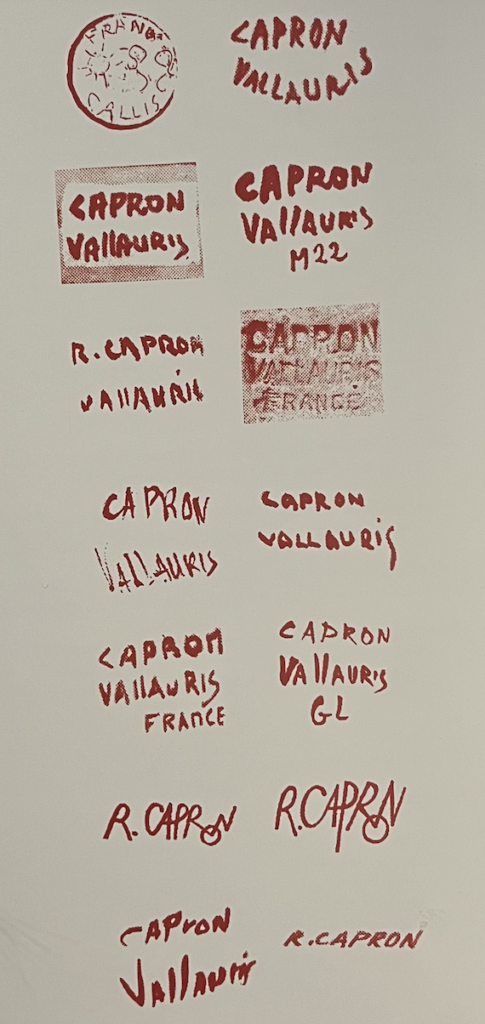 FRANCE
CALLIS
CAPRON
VALLAURIS
CAPRON
VallAURIS
CAPRON
VAllAURIS
M22
R.CAPRON
VAllAURIS
CAPRON
VALLAURIS
FRANCE
CAPRON
VALLAURIS
CAPRON
VALLAURIS
CAPRON
VAllAURIS
FRANCE
CAPRON
VAllAURIS
GL
R.CAPRON
R.CAPRON
CAPrON
VAllAuris
R.CAPRON